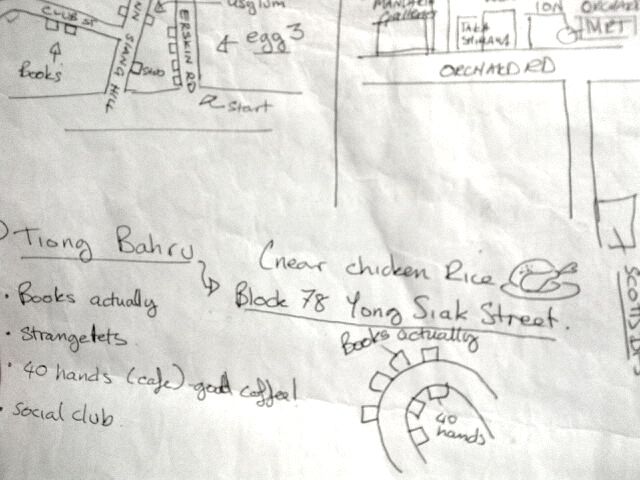 asylum
CLUB ST
ANN SIANG HILL
ERSKIN RD
egg 3
Books
Start
MANDARIN
Gallery
TAKA
ION
ORCHARD
MRT
ORCHARD RD
SCOTTS
Tiong Bahru
(near chicken Rice
Block 78 Yong Siak Street.
• Books actually
• Strangelets
• 40 hands (cafe) good coffee!
• Social club
Books actually
40
hands